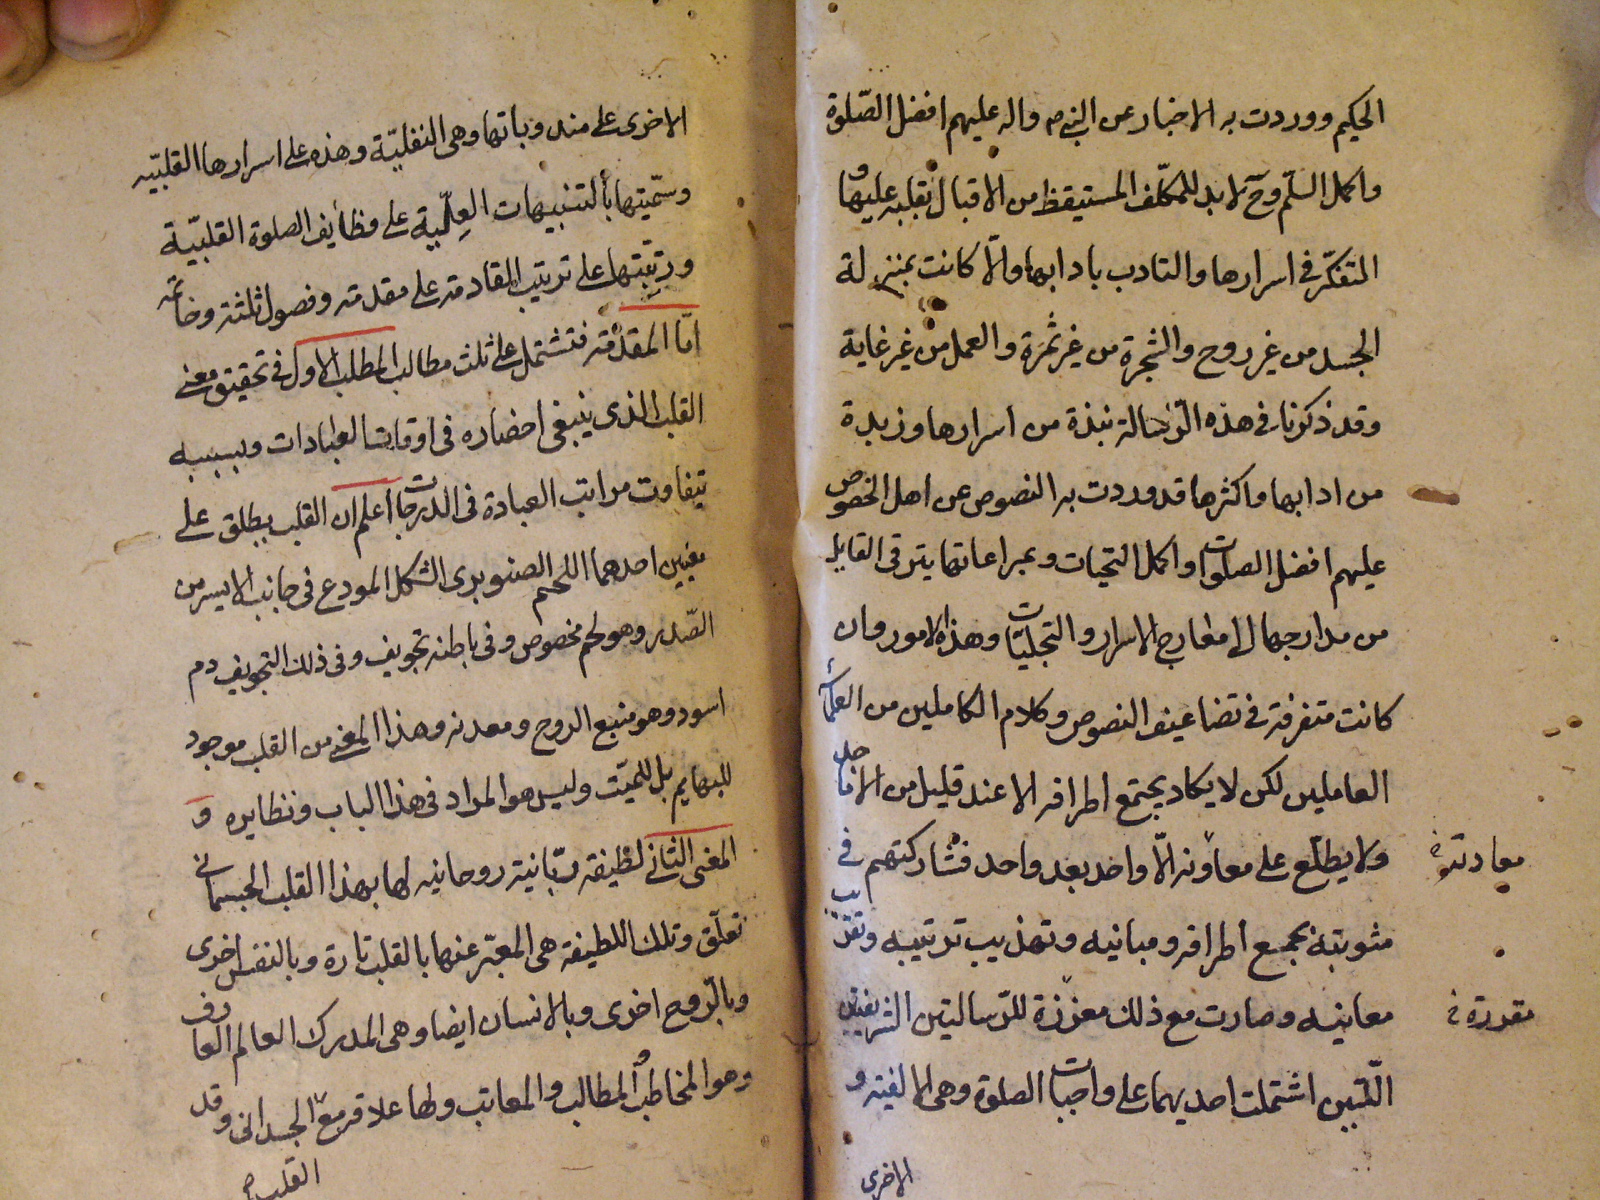 الحكيم ووردت به الاخبار عن النبي ص واله عليهم افضل الصّلوة
واكمل السّلم وح لا بد للمكلّف المستيقظ من الاقبال بقلبه عليها و
التفكّر في اسرارها والتادب بادابها والّا كانت بمنزلة
الجسد من غير روح والشجرة من غير ثمرة والعمل من غير غاية
وقد ذكرنا في هذه الرّسالة نبذة من اسرارها وزبدة
من ادابها واكثرها قد وردت به النصوص عن اهل الخصوص
عليهم افضل الصلوات واكمل التحيات وبمراعاتها يترقى القابل
من مدارجها الى معارج الاسرار والتجليّات وهذه الامور وان
كانت متفرقة في تضاعيف النصوص وكلام الكاملين من العلماء
العاملين لكن لا يكاد يجتمع اطرافه الا عند قليل من الافاضل
ولا يطلّع على معاونه الّا واحد بعد واحد فشاركتهم في
معادنه خ
مثوبته بجمع اطرافه ومبانيه وتهذيب ترتيبه وتقريب
معانيه وصارت مع ذلك معززة للرّسالتين الشريفتين
مقررة خ
اللّتين اشتملت احديهما على واجبات الصلوة وهي الالفية و
الاخرى
الاخرى على مندوباتها وهي النفليّة وهذه على اسرارها القلبيّه
وسمّيتها بالتنبيهات العِلّية على وظائف الصلوة القلبيّة
ورتبتها على ترتيب القادمة على مقدمة وفصول ثلثة وخاتمه
امّا المقدّمة فتشتمل على ثلث مطالب المطلب الاول في تحقيق معنى
القلب الذى ينبغى احضاره فى اوقات العبادات وبسببه
تتفاوت مراتب العبادة فى الدرجات اعلم ان القلب يطلق على
معنيين احدهما اللّحم الصنوبرى الشكل المودع فى جانب الايسر من
الصّدر وهو لحم مخصوص وفى باطنه تجويف وفى ذلك التجويف دم
اسود وهو منبع الروح ومعدنه وهذا المعنى من القلب موجود
للبهايم بل للميّت وليس هو المراد فى هذا الباب ونظايره و
المعنى الثانى لطيفة ربّانية روحانيه لها بهذا القلب الجسمانى
تعلّق وتلك اللطيفة هى المعبّر عنها بالقلب تارة وبالنفس اخرى
وبالرّوح اخرى وبالانسان ايضا وهى المدرك العالم العارف
وهو المخاطب و المطالب والمعاتب ولها علاقة مع الجسدانى وقد
القلب